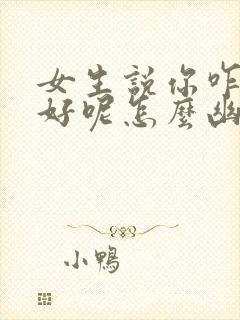 女生説你咋
好呢怎麼幽
小鴨